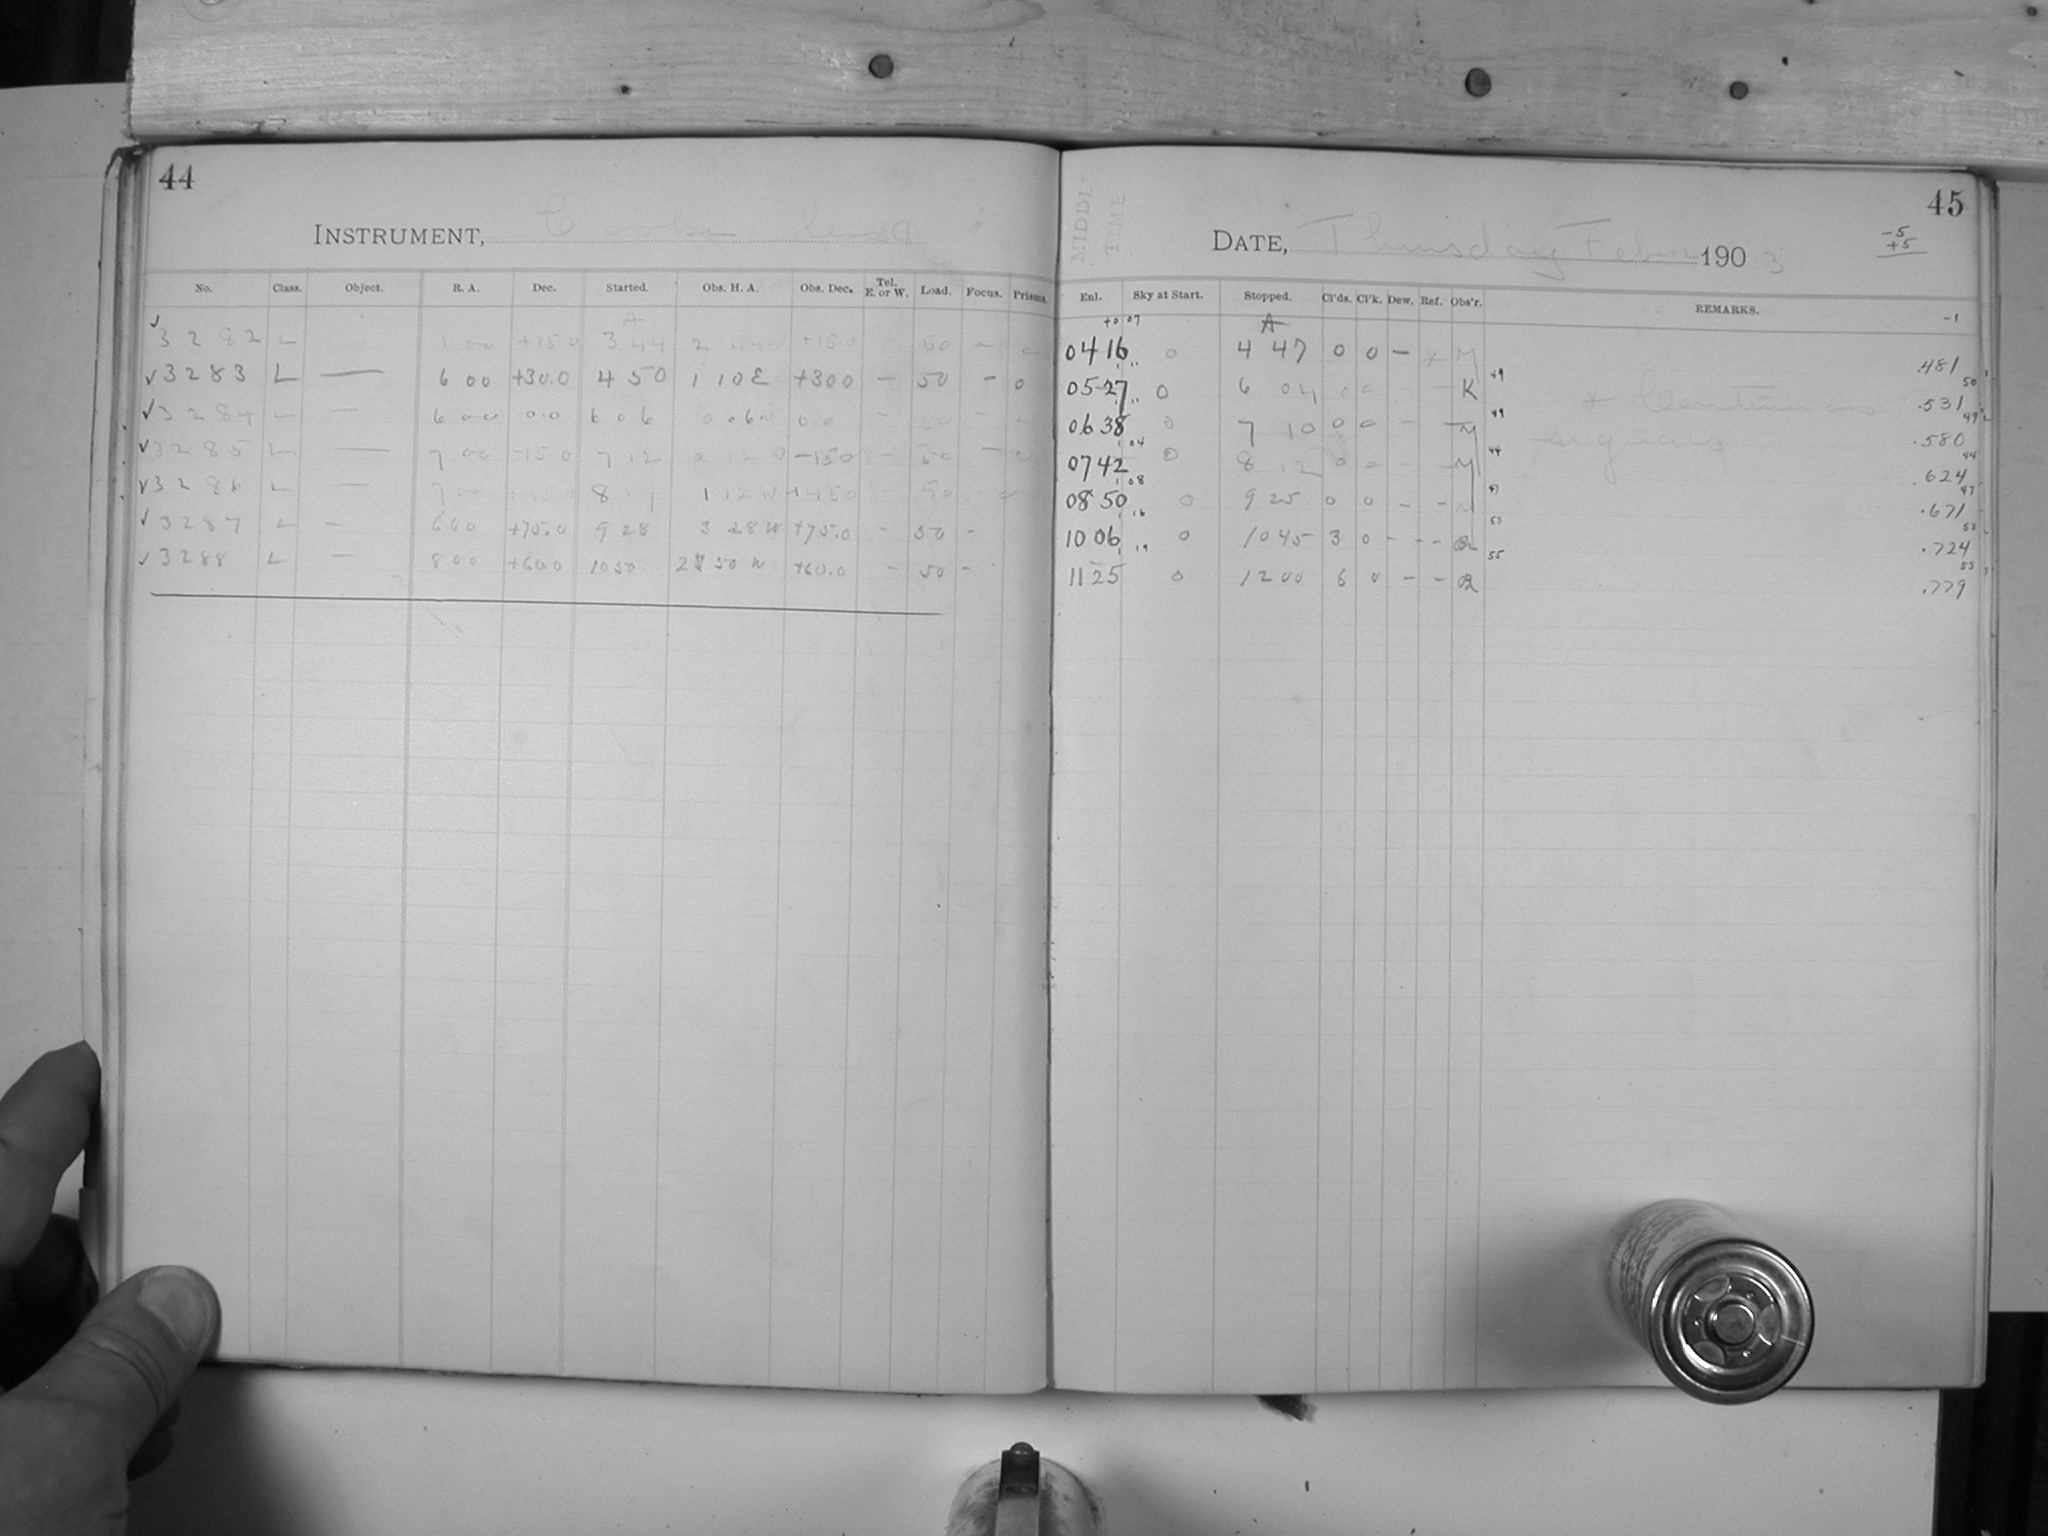 44
INSTRUMENT, Cooke lens
No. Class. Object. R. A. Dec. Started. Obs. H. A. Obs. Dec. Tel. E. or W. Load. Focus. Prisms.
A
✓ 3282 L 1 00 +15 0 3 44 2 44 W +15 0 - 50 - 0
✓ 3283 L — 6 00 +30.0 4 50 1 10 E +30 0 - 50 - 0
✓ 3284 L — 6 00 0.0 6 06 0 06 W 0.0 - 50 -
✓ 3285 L — 7 00 -15 0 7 12 0 12 -15 0 - 50 - 0
✓ 3286 L — 7 00 +45 0 8 1 12 W +45 0 - 50 - 0
✓ 3287 L — 6 00 +75.0 9 28 3 28 W +75.0 - 50 -
✓ 3288 L — 8 00 +60.0 10 50 2 50 W +60.0 - 50 -
45
MIDDL
TIME
DATE, Thursday Feb 1903
-5
+5
Enl. Sky at Start. Stopped. Cl'ds. Cl'k. Dew. Ref. Obs'r. REMARKS. -1
+0 07 A
04 16 0 4 47 0 0 - + M .481
05 27 0 6 04 0 0 - - K 49 + Continuous .531 50
06 38 0 7 10 0 0 - M 49 signals .580 49
07 42 04 0 8 12 0 0 - - M 44 .624 44
08 50 08 0 9 25 0 0 - - M 47 .671 47
10 06 16 0 10 45 3 0 - - - 53 .724 53
11 25 19 0 12 00 6 0 - - 55 .779 55